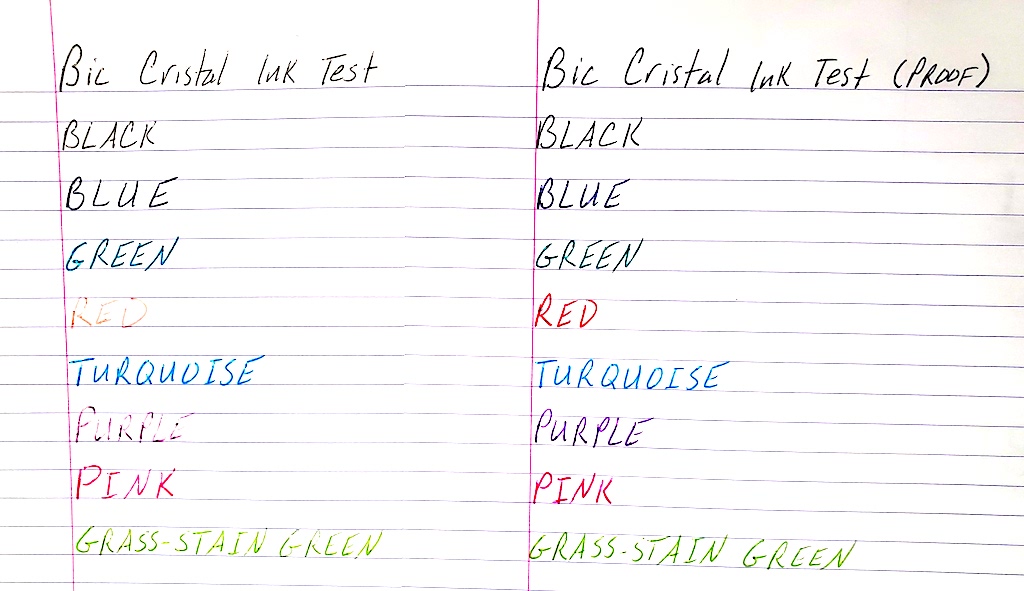 Bic Cristal Ink Test
BLACK
BLUE
GREEN
RED
TURQUOISE
PURPLE
PINK
GRASS-STAIN GREEN
Bic Cristal Ink Test (PROOF)
BLACK
BLUE
GREEN
RED
TURQUOISE
PURPLE
PINK
GRASS-STAIN GREEN